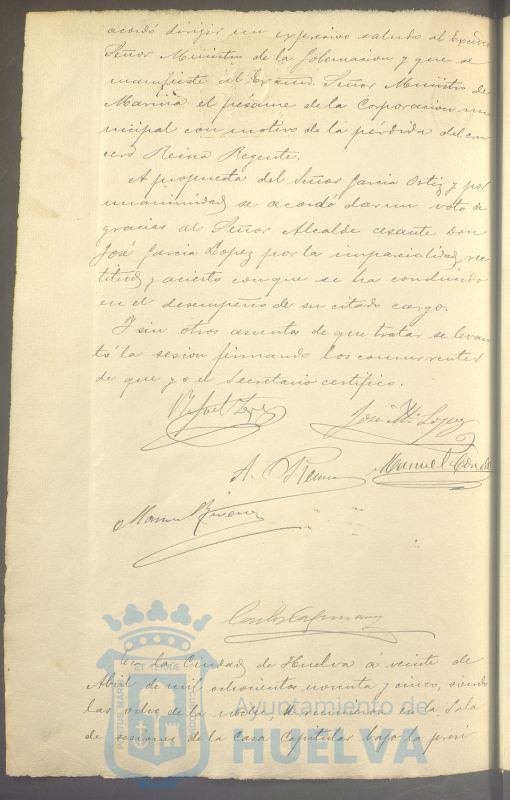 acordó dirijir un expresivo saludo al Excmo
Señor Ministro de la Gobernacion y que se
manifieste al Excmo. Señor Ministro de
Marina el pésame de la Corporacion mu
nicipal con motivo de la pérdida del cru
cero Reina Regente.
A propuesta del Señor Garcia Ortiz y por
unanimidad se acordó dar un voto de
gracias al Señor Alcalde cesante Don
José Garcia Lopez por la imparcialidad, rec
titud y acierto con que se ha conducido
en el desempeño de su citado cargo.
Y sin otros asuntos de que tratar se levan
tó la sesion firmando los concurrentes
de que yo el Secretario certifico.
José Mª Lopez
A.
Manuel Conde
Manuel
En la Ciudad de Huelva á veinte de
Abril de mil ochocientos noventa y cinco, siendo
las ocho de la noche, se reunieron en la Sala
de sesiones de la Casa Capitular bajo la presi
PORTUS MARIS ET TERRE CUSTODIA
Ayuntamiento de
HUELVA